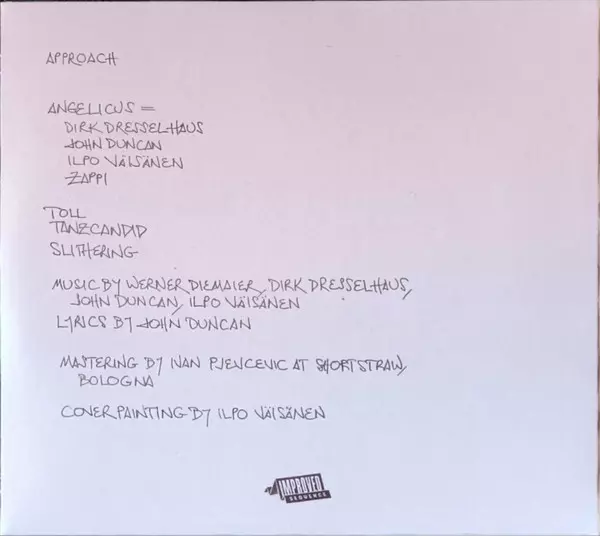 APPROACH
ANGELICUS =
DIRK DRESSELHAUS
JOHN DUNCAN
ILPO VÄISÄNEN
ZAPPI
TOLL
TANZCANDID
SLITHERING
MUSIC BY WERNER DIEMAIER, DIRK DRESSELHAUS,
JOHN DUNCAN, ILPO VÄISÄNEN
LYRICS BY JOHN DUNCAN
MASTERING BY IVAN PJEVCEVIC AT SHORTSTRAW,
BOLOGNA
COVER PAINTING BY ILPO VÄISÄNEN
IMPROVED
SEQUENCE